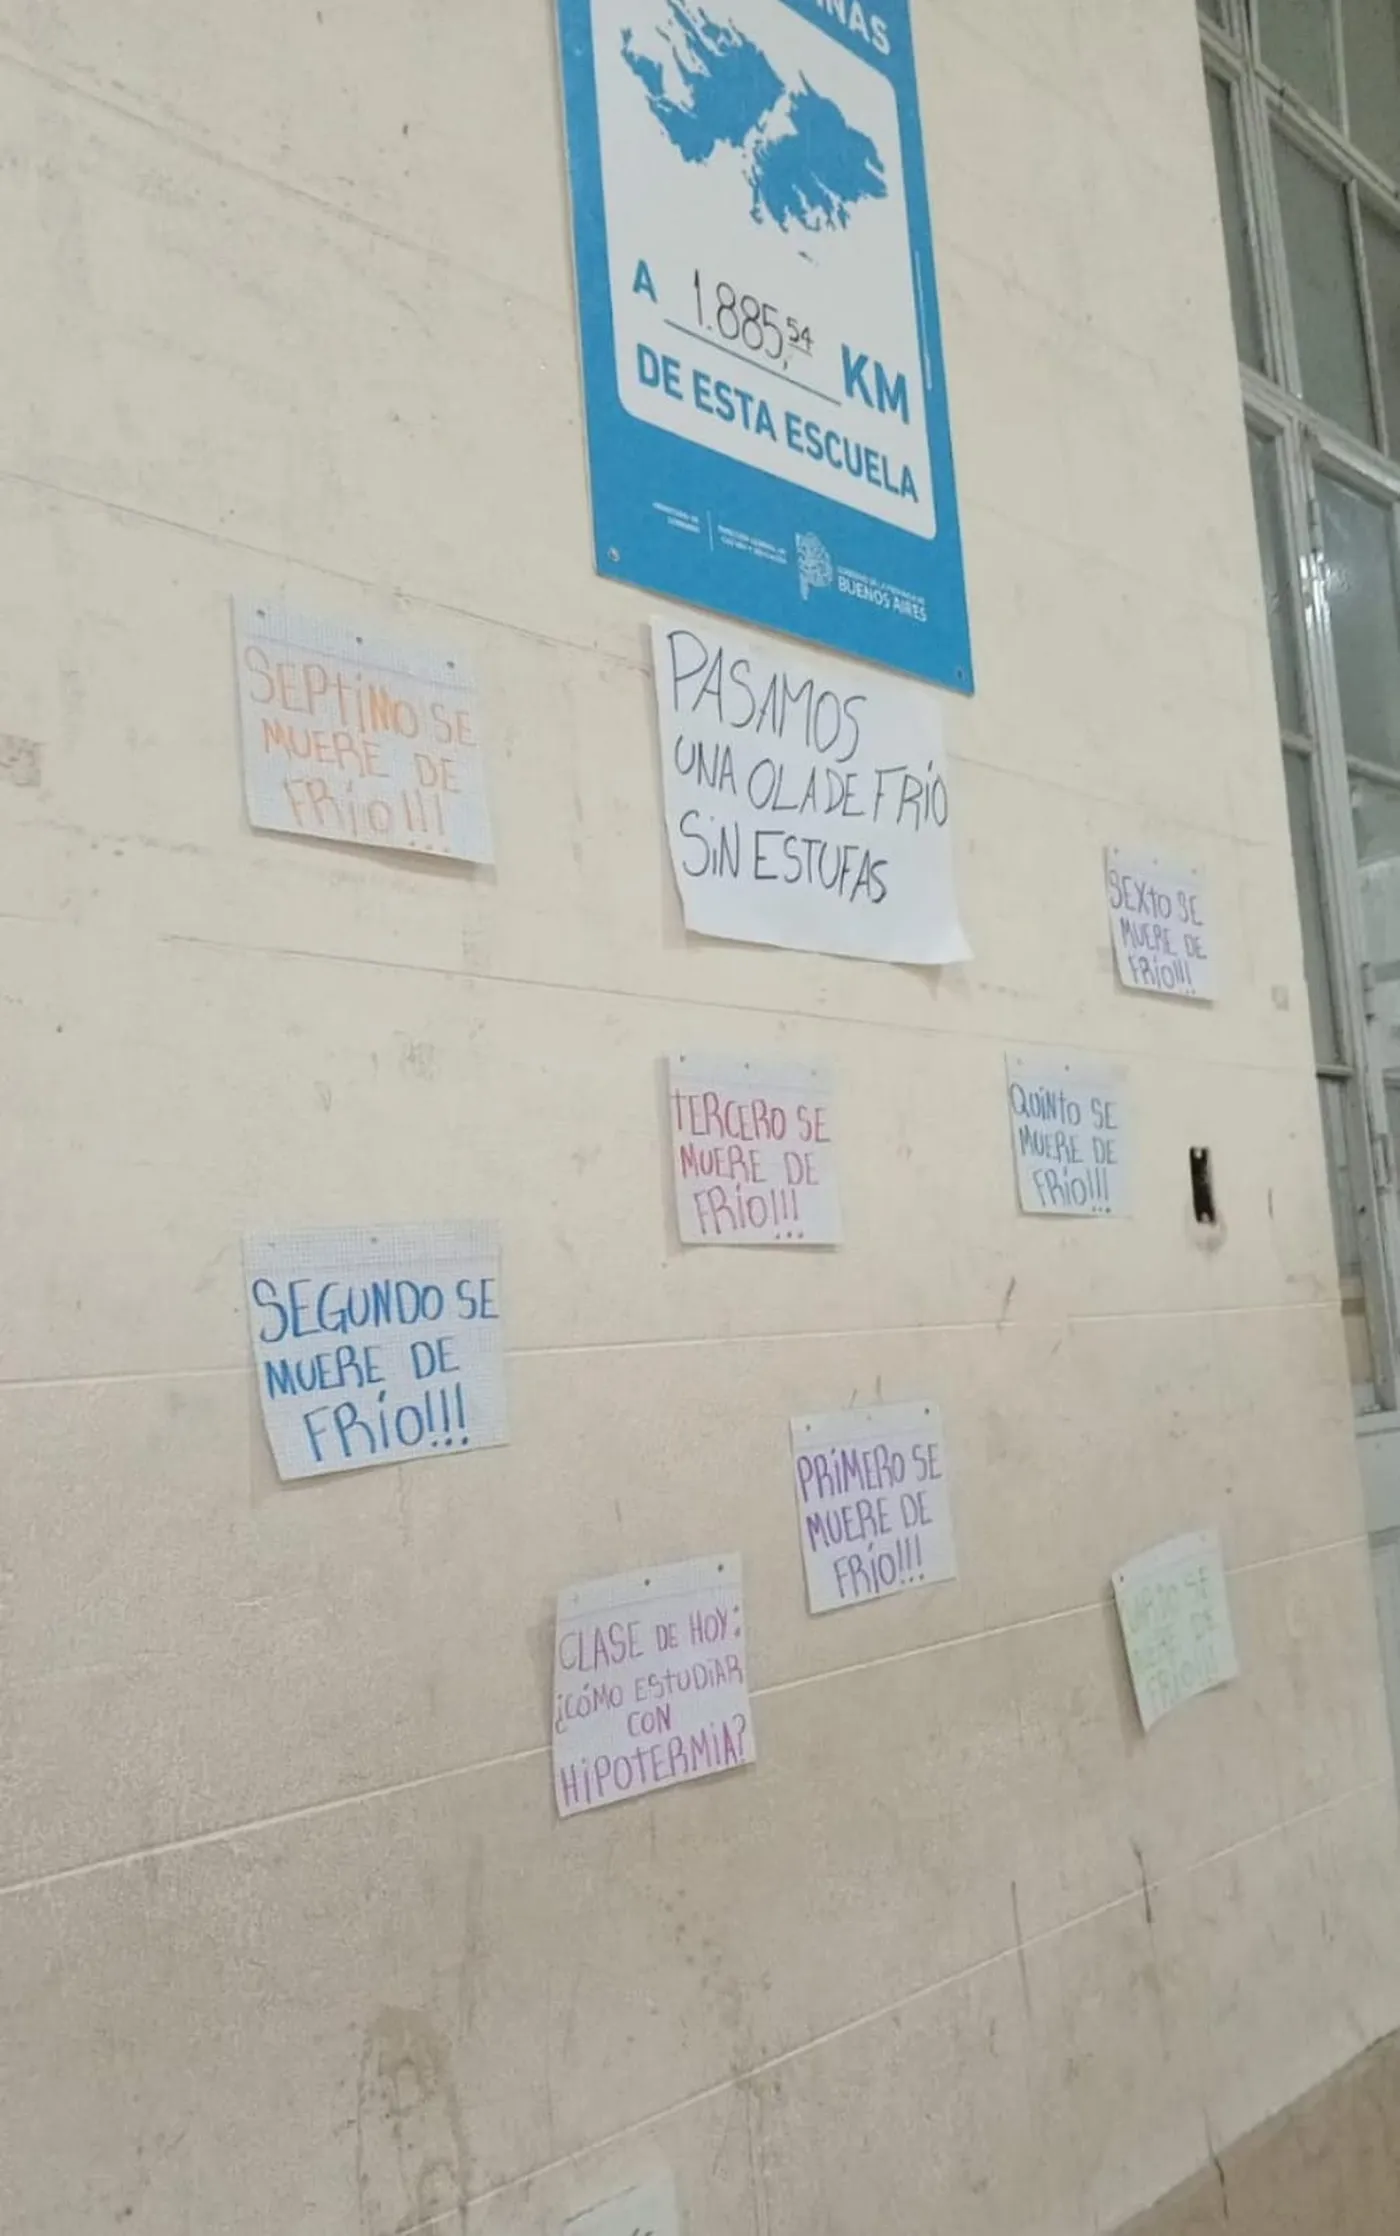 A 1.885,54 KM
DE ESTA ESCUELA
GOBIERNO DE LA PROVINCIA DE
BUENOS AIRES
SEPTIMO SE
MUERE DE
FRÍO!!!
PASAMOS
UNA OLA DE FRÍO
SIN ESTUFAS
SEXTO SE
MUERE DE
FRÍO!!!
TERCERO SE
MUERE DE
FRÍO!!!
QUINTO SE
MUERE DE
FRÍO!!!
SEGUNDO SE
MUERE DE
FRÍO!!!
PRIMERO SE
MUERE DE
FRÍO!!!
CLASE DE HOY:
¿CÓMO ESTUDIAR
CON
HIPOTERMIA?
SE
DE
FRÍO!!!